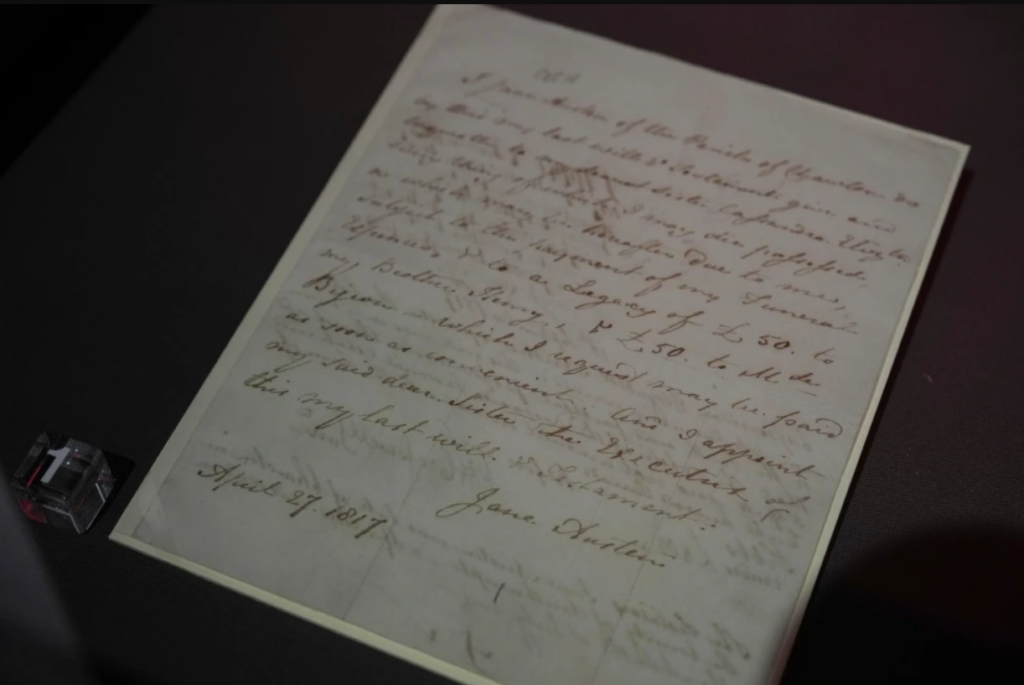 I Jane Austen of the Parish of Chawton do
by this my last Will & Testament give and
bequeath to my dearest Sister Cassandra Elizth
every thing of which I may die possessed,
or which may be hereafter due to me,
subject to the payment of my Funeral
Expences, & to a Legacy of £50. to
my Brother Henry, & £50. to Mde
Bijion - which I request may be paid
as soon as convenient. And I appoint
my said dear Sister the Executrix of
this my last will & Testament.
Jane Austen
April 27. 1817
1